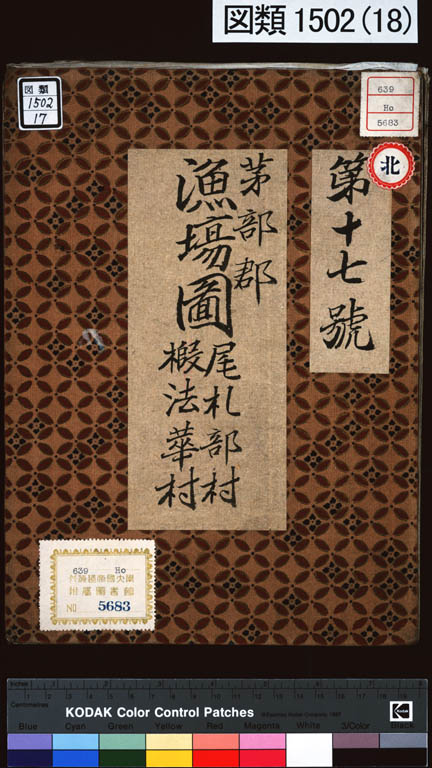 図類 1502 (18)
図類
1502
17
639
Ho
5683
北
第十七號
茅部郡
漁場圖
尾札部村
椴法華村
639 Ho
NO 5683
Inches
Centimetres
KODAK Color Control Patches
©Eastman Kodak Company, 1997
Kodak
Blue Cyan Green Yellow Red Magenta White 3/Color Black